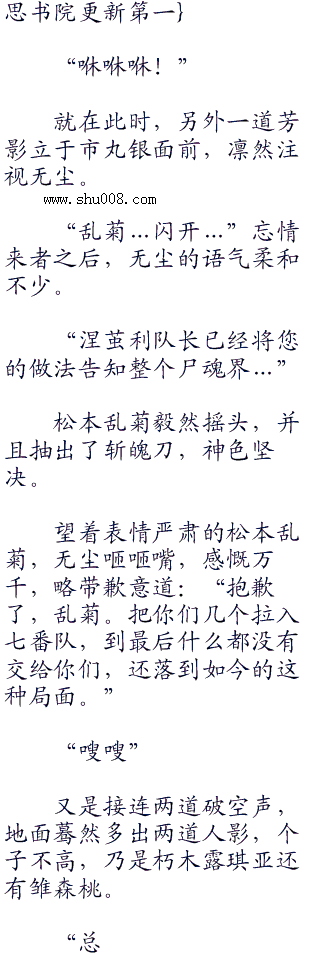 思书院更新第一}
“咻咻咻！”
就在此时，另外一道芳
影立于市丸银面前，凛然注
视无尘。
www.shu008.com
“乱菊…闪开…”忘情
来者之后，无尘的语气柔和
不少。
“涅茧利队长已经将您
的做法告知整个尸魂界…”
松本乱菊毅然摇头，并
且抽出了斩魄刀，神色坚
决。
望着表情严肃的松本乱
菊，无尘咂咂嘴，感慨万
千，略带歉意道：“抱歉
了，乱菊。把你们几个拉入
七番队，到最后什么都没有
交给你们，还落到如今的这
种局面。”
“嗖嗖”
又是接连两道破空声，
地面蓦然多出两道人影，个
子不高，乃是朽木露琪亚还
有雏森桃。
“总